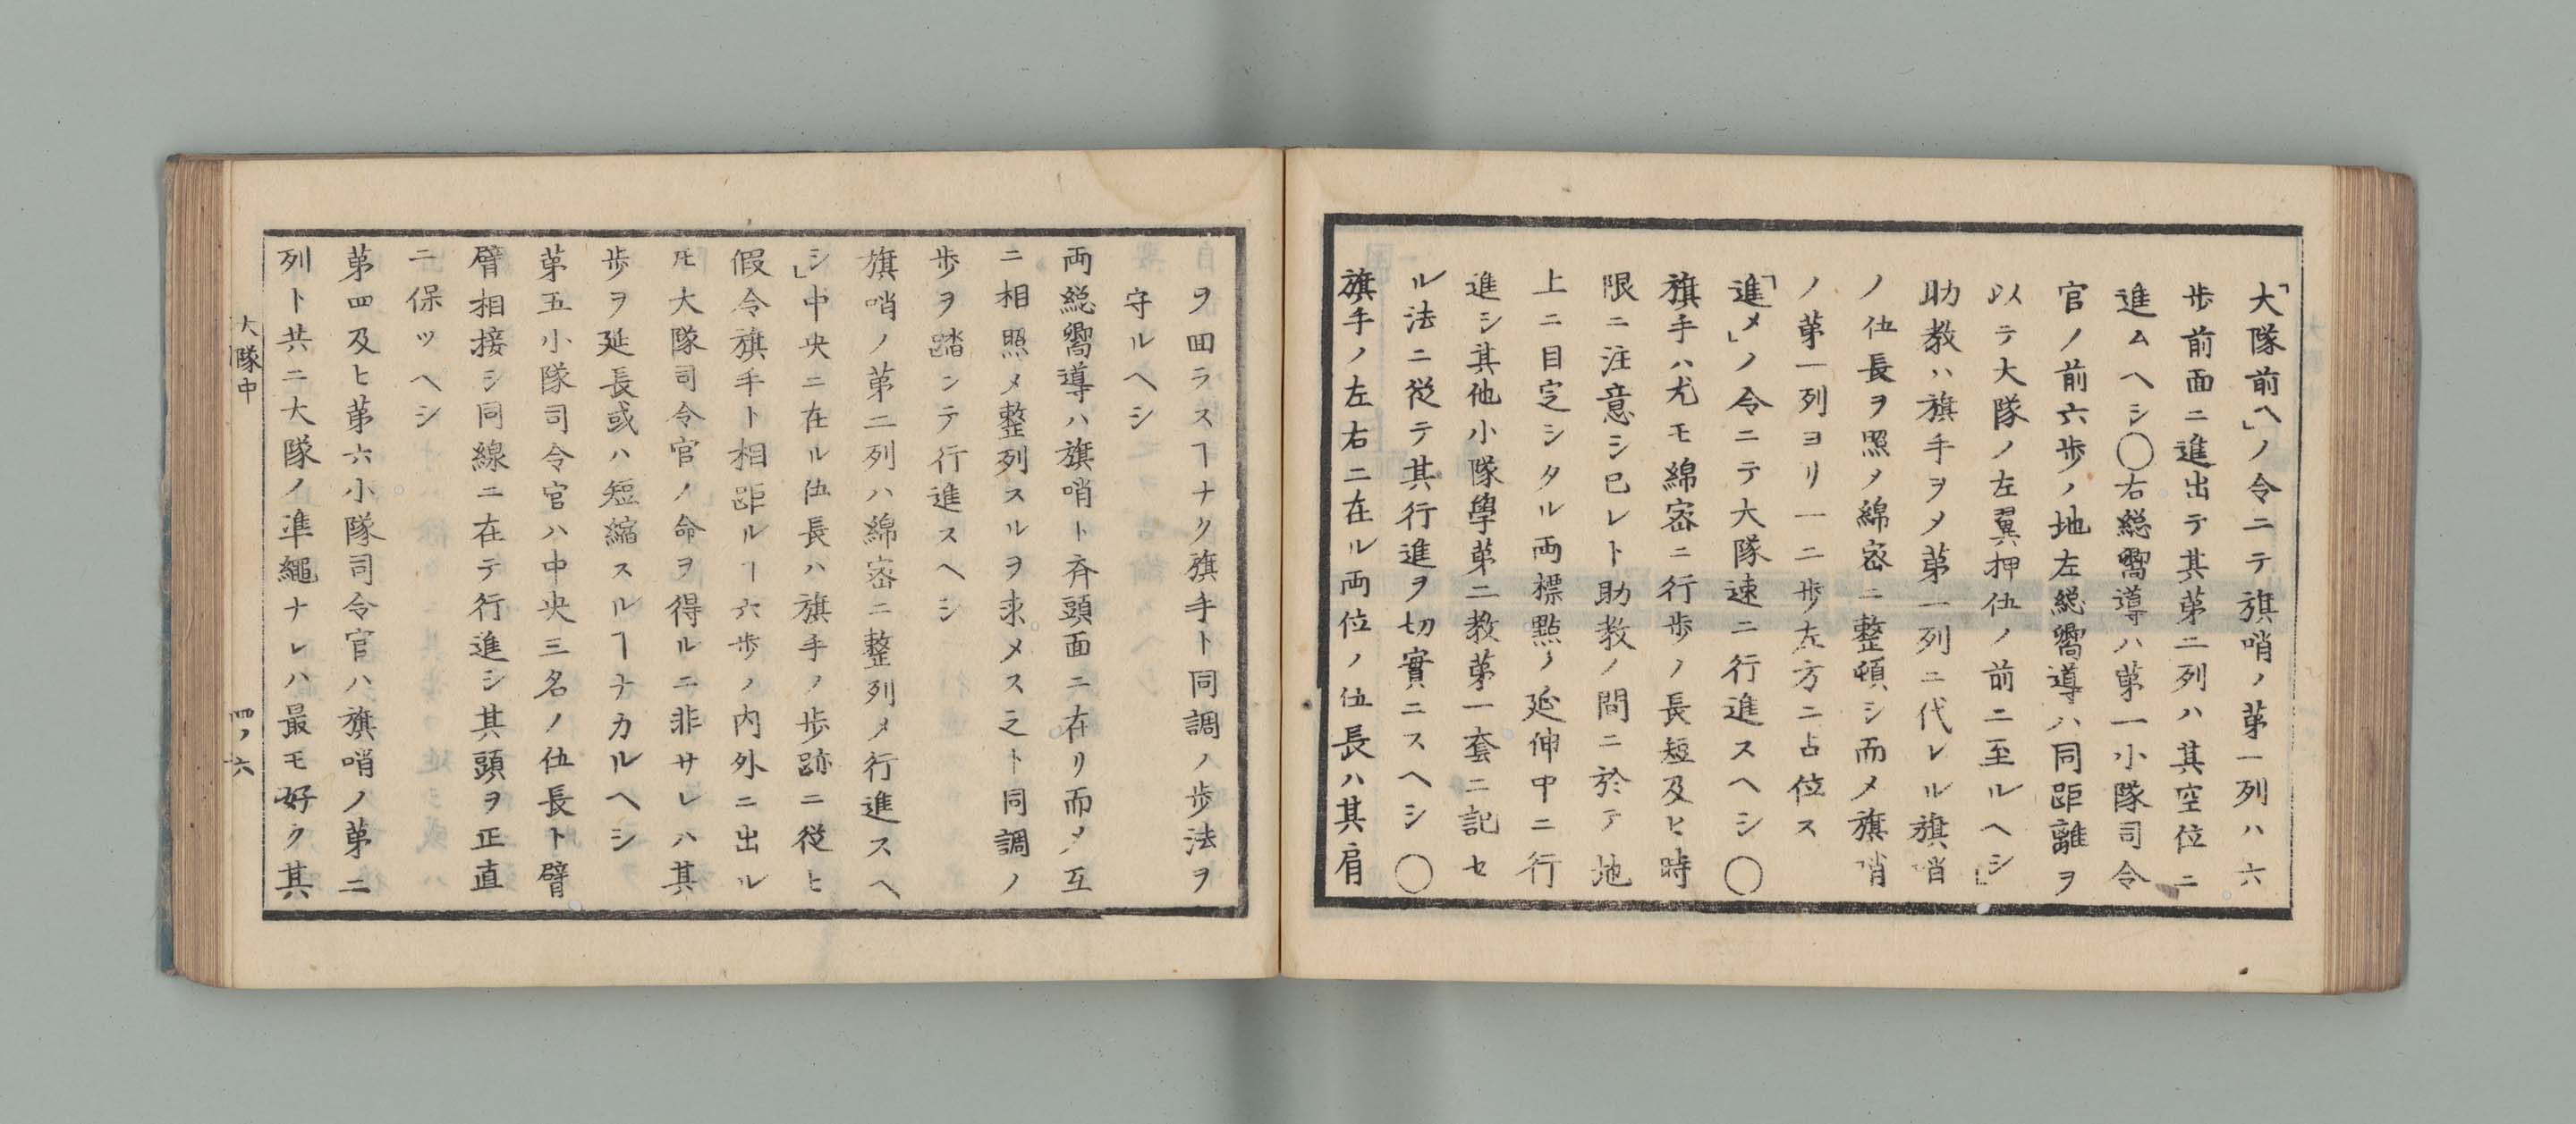 「大隊前ヘ」ノ令ニテ旗哨ノ第一列ハ六
歩前面ニ進出テ其第二列ハ其空位ニ
進ムヘシ〇右総嚮導ハ第一小隊司令
官ノ前六歩ノ地左総嚮導ハ同距離ヲ
以テ大隊ノ左翼押伍ノ前ニ至ルヘシ」
助教ハ旗手ヲメ第一列ニ代レル旗哨
ノ伍長ヲ照ノ綿密ニ整頓シ而メ旗哨
ノ第一列ヨリ一二歩左方ニ占位ス
「進メ」ノ令ニテ大隊速ニ行進スヘシ〇
旗手ハ尤モ綿密ニ行歩ノ長短及ヒ時
限ニ注意シ已レト助教ノ間ニ於テ地
上ニ目定シタル両標點ノ延伸中ニ行
進シ其他小隊學第二教第一套ニ記セ
ル法ニ従テ其行進ヲ切實ニスヘシ〇
旗手ノ左右ニ在ル両位ノ伍長ハ其肩
ヲ回ラスヿナク旗手ト同調ノ歩法ヲ
守ルヘシ
両総嚮導ハ旗哨ト斉頭面ニ在リ而メ互
ニ相照メ整列スルヲ求メス之ト同調ノ
歩ヲ踏ンテ行進スヘシ
旗哨ノ第二列ハ綿密ニ整列メ行進スヘ
シ」中央ニ在ル伍長ハ旗手ノ歩跡ニ従ヒ
假令旗手ト相距ルヿ六歩ノ内外ニ出ル
𪜈大隊司令官ノ命ヲ得ルニ非サレハ其
歩ヲ延長或ハ短縮スルヿナカルヘシ
第五小隊司令官ハ中央三名ノ伍長ト臂
臂相接シ同線ニ在テ行進シ其頭ヲ正直
ニ保ツヘシ
第四及ヒ第六小隊司令官ハ旗哨ノ第二
列ト共ニ大隊ノ準繩ナレハ最モ好ク其
大隊中
四ノ六